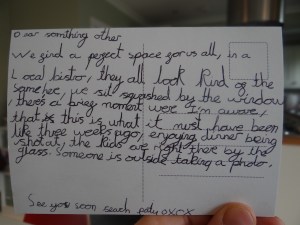 Dear somthing other
We find a pefect space for us all, in a
Local bistro, they all look kind of the
same here, we sit squashed by the window
theres a breif moment were I'm aware,
that is this is what it must have been
like three weeks ago, enjoying dinner being
shot at, the kids are right there by the
glass. Someone is outside taking a photo.
See you soon seach paty oxox